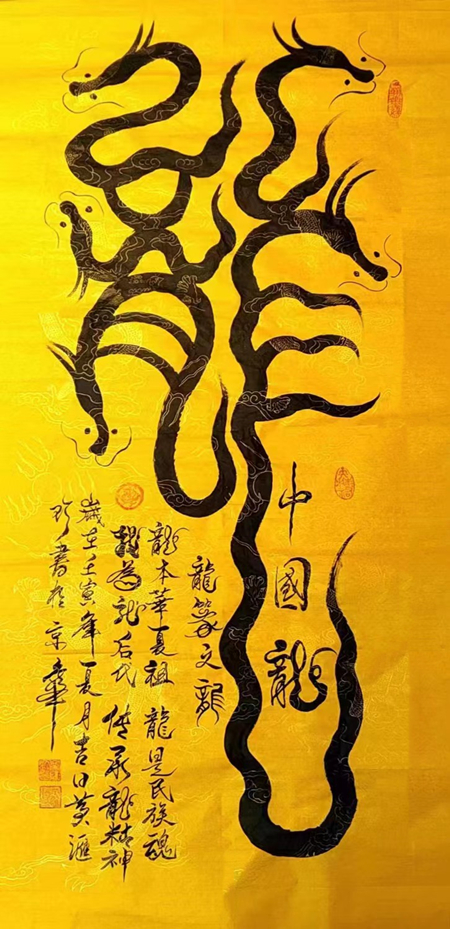 龍
中國龍
龍篆文龍
龍本華夏祖 龍是民族魂
我為龍后代 传承龍精神
歲在壬寅年夏月吉日黃滙
珍書於京華